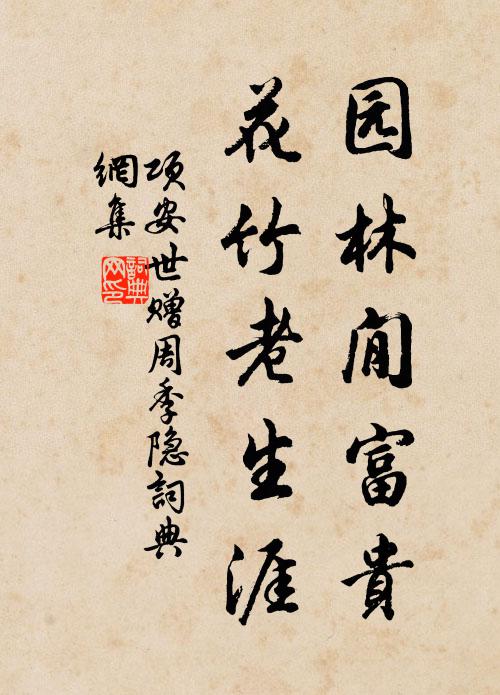 园林闲富貴
花竹老生涯
项安世赠周季隐詞典
網集
詞典
网印